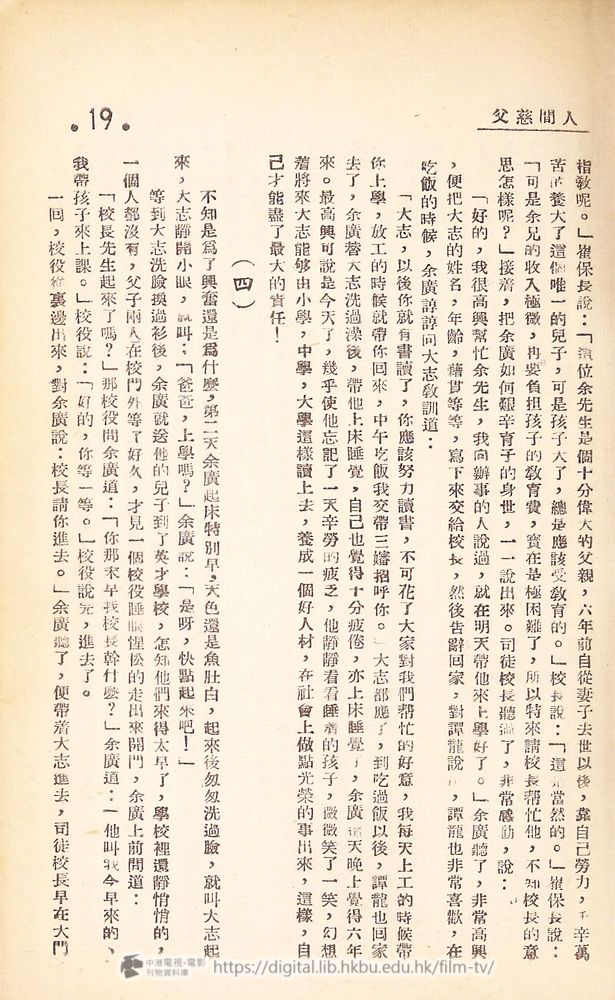 人間慈父
指敎呢。」崔保長說：「這位余先生是個十分偉大的父親，六年前自從妻子去世以後，靠自己勞力，千辛萬
苦的養大了這個唯一的兒子，可是孩子大了，總是應該受敎育的。」校長說：「這是當然的。」崔保長說：
「可是余兄的收入極微，再要負担孩子的敎育費，實在是極困難了，所以特來請校長帮忙他，不知校長的意
思怎樣呢？」接着，把余廣如何艱辛育子的身世，一一說出來。司徒校長聽了，非常感動，說：
「好的，我很高興幫忙余先生，我向辦事的人說過，就在明天帶他來上學好了。」余廣聽了，非常高興
，便把大志的姓名，年齡，籍貫等等，寫下來交給校長，然後告辭回家，對譚龍說，譚龍也非常喜歡，在
吃飯的時候，余廣諄諄向大志敎訓道：
「大志，以後你就有書讀了，你應該努力讀書，不可花了大家對我們帮忙的好意，我每天上工的時候帶
你上學，放工的時候就帶你回來，中午吃飯我交帶三嬸招呼你。」大志都應了，到吃過飯以後，譚龍也回家
去了，余廣替大志洗過澡後，帶他上床睡覺，自己也覺得十分疲倦，亦上床睡覺了，余廣這天晚上覺得六年
來。最高興可說是今天了，幾乎使他忘記了一天辛勞的疲乏，他靜靜看看睡着的孩子，微微笑了一笑，幻想
着將來大志能够由小學，中學，大學這樣讀上去，養成一個好人材，在社會上做點光榮的事出來，這樣，自
己才能盡了最大的責任！
（四）
不知是爲了興奮還是爲什麽，第二天余廣起床特別早，天色還是魚肚白，起來後匆匆洗過臉，就叫大志起
來，大志靜開小眼，就叫：「爸爸，上學嗎？」余廣說：「是呀，快點起來吧！」
等到大志洗臉換過衫後，余廣就送他的兒子到了英才學校，怎知他們來得太早了，學校裡還靜悄悄的，
一個人都沒有，父子兩人在校門外等了好久，才見一個校役睡眼惺忪的走出來開門，余廣上前問道：
「校長先生起來了嗎？」那校役問余廣道：「你那末早找校長幹什麽？」余廣道：「他叫我今早來的、
我帶孩子來上課。」校役說：「好的，你等一等。」校役說完，進去了。
一回，校役從裏邊出來，對余廣說：校長請你進去。」余廣聽了，便帶着大志進去，司徒校長早在大門
•19•
中港電視·電影
刊物資料庫
https://digital.lib.hkbu.edu.hk/film-tv/